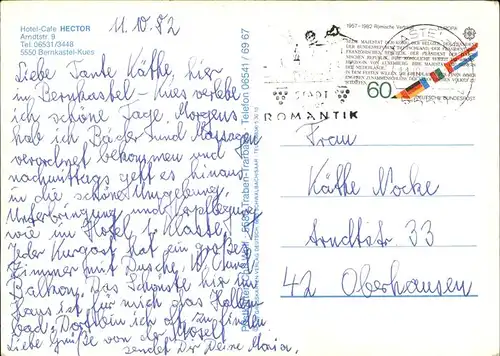 Hotel-Cafe HECTOR
Arndtstr. 9
Tel. 06531/3448
5550 Bernkastel-Kues
11.10.82
Liebe Tante Käthe, hier
in Bernkastel-Kues verlebe
ich schöne Tage. Morgens
hab ich Bäder und Massagen
verordnet bekommen und
nachmittags geht es hinaus
in die schöne Umgebung.
Unterbringung und Verpflegung
wie im Hotel, 1. Klasse.
Jeder Kurgast hat ein großes
Zimmer mit Dusche, W.C. und
Balkon. Das Schönste hier im
Haus ist für mich das Hallen-
bad. Dort bin ich oft zu finden.
Liebe Grüße von der Mosel
sendet Dir Deine Maria.
Traben-Trarbach Telefon 06541/69 67
1957-1982 Römische Verträge
EUROPA
60
DEUTSCHE BUNDESPOST
STADT
ROMANTIK
Frau
Käthe Nocke
Arndtstr 33
42 Oberhausen